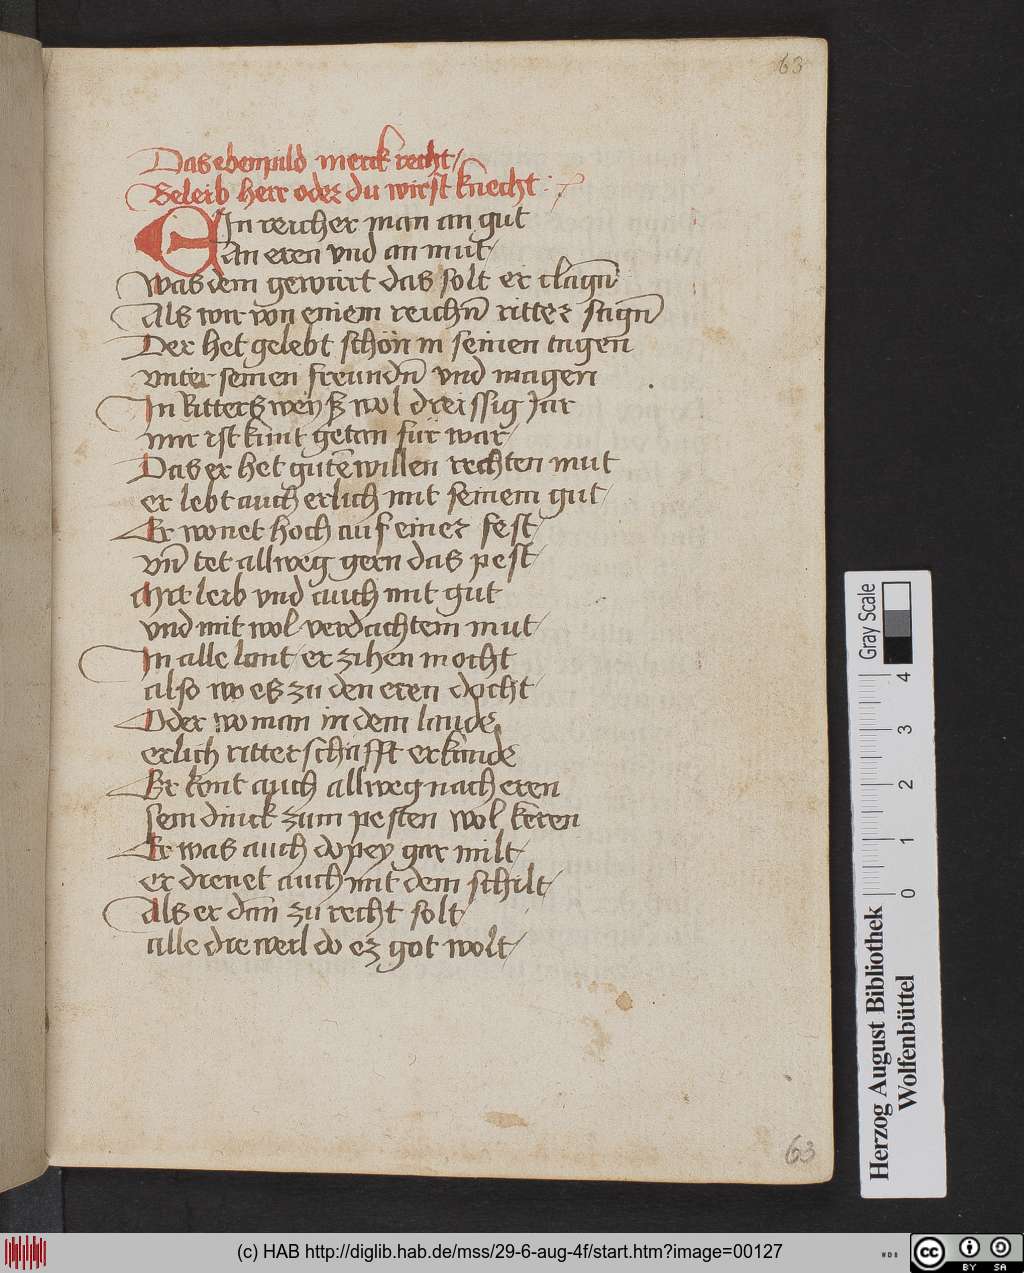 63
Das ebenpild merck recht/
Beleib herr oder du wirst knecht :
EIn reicher man an gut
An eren vnd an mut/
Was dem gewirt das solt er clagn̄
Als wir von einem reichn̄ ritter sagn̄
Der het gelebt schön in seinen tagen
vnter seinen freundn̄ vnd magen
In Ritters weyß wol dreissig Jar
mir ist kunt getan für war/
Das er het gutē willen rechten mut
er lebt auch erlich mit seinem gut/
Er wonet hoch auf einer fest/
vn̄ tet allweg gern das pest/
Mit leib vnd auch mit gut
vnd mit wol verdachtem mut/
In alle lant er zihen mocht
also wo es zu den eren docht/
Oder wo man in dem lande
erlich ritterschafft erkande
Er kont auch allweg nach eren
sein dinck zum pesten wol keren
Er was auch dopey gar milt/
er dienet auch mit dem schilt/
Als er dan̄ zu recht solt/
alle die weil do ez got wolt/
63
Gray Scale
0 1 2 3 4
Herzog August Bibliothek
Wolfenbüttel
(c) HAB http://diglib.hab.de/mss/29-6-aug-4f/start.htm?image=00127
WDB
cc BY SA